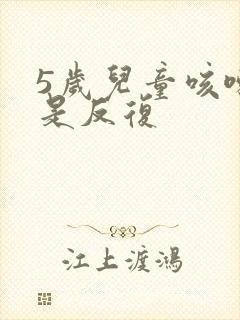 5歲兒童咳
是反復
江上渡鴻